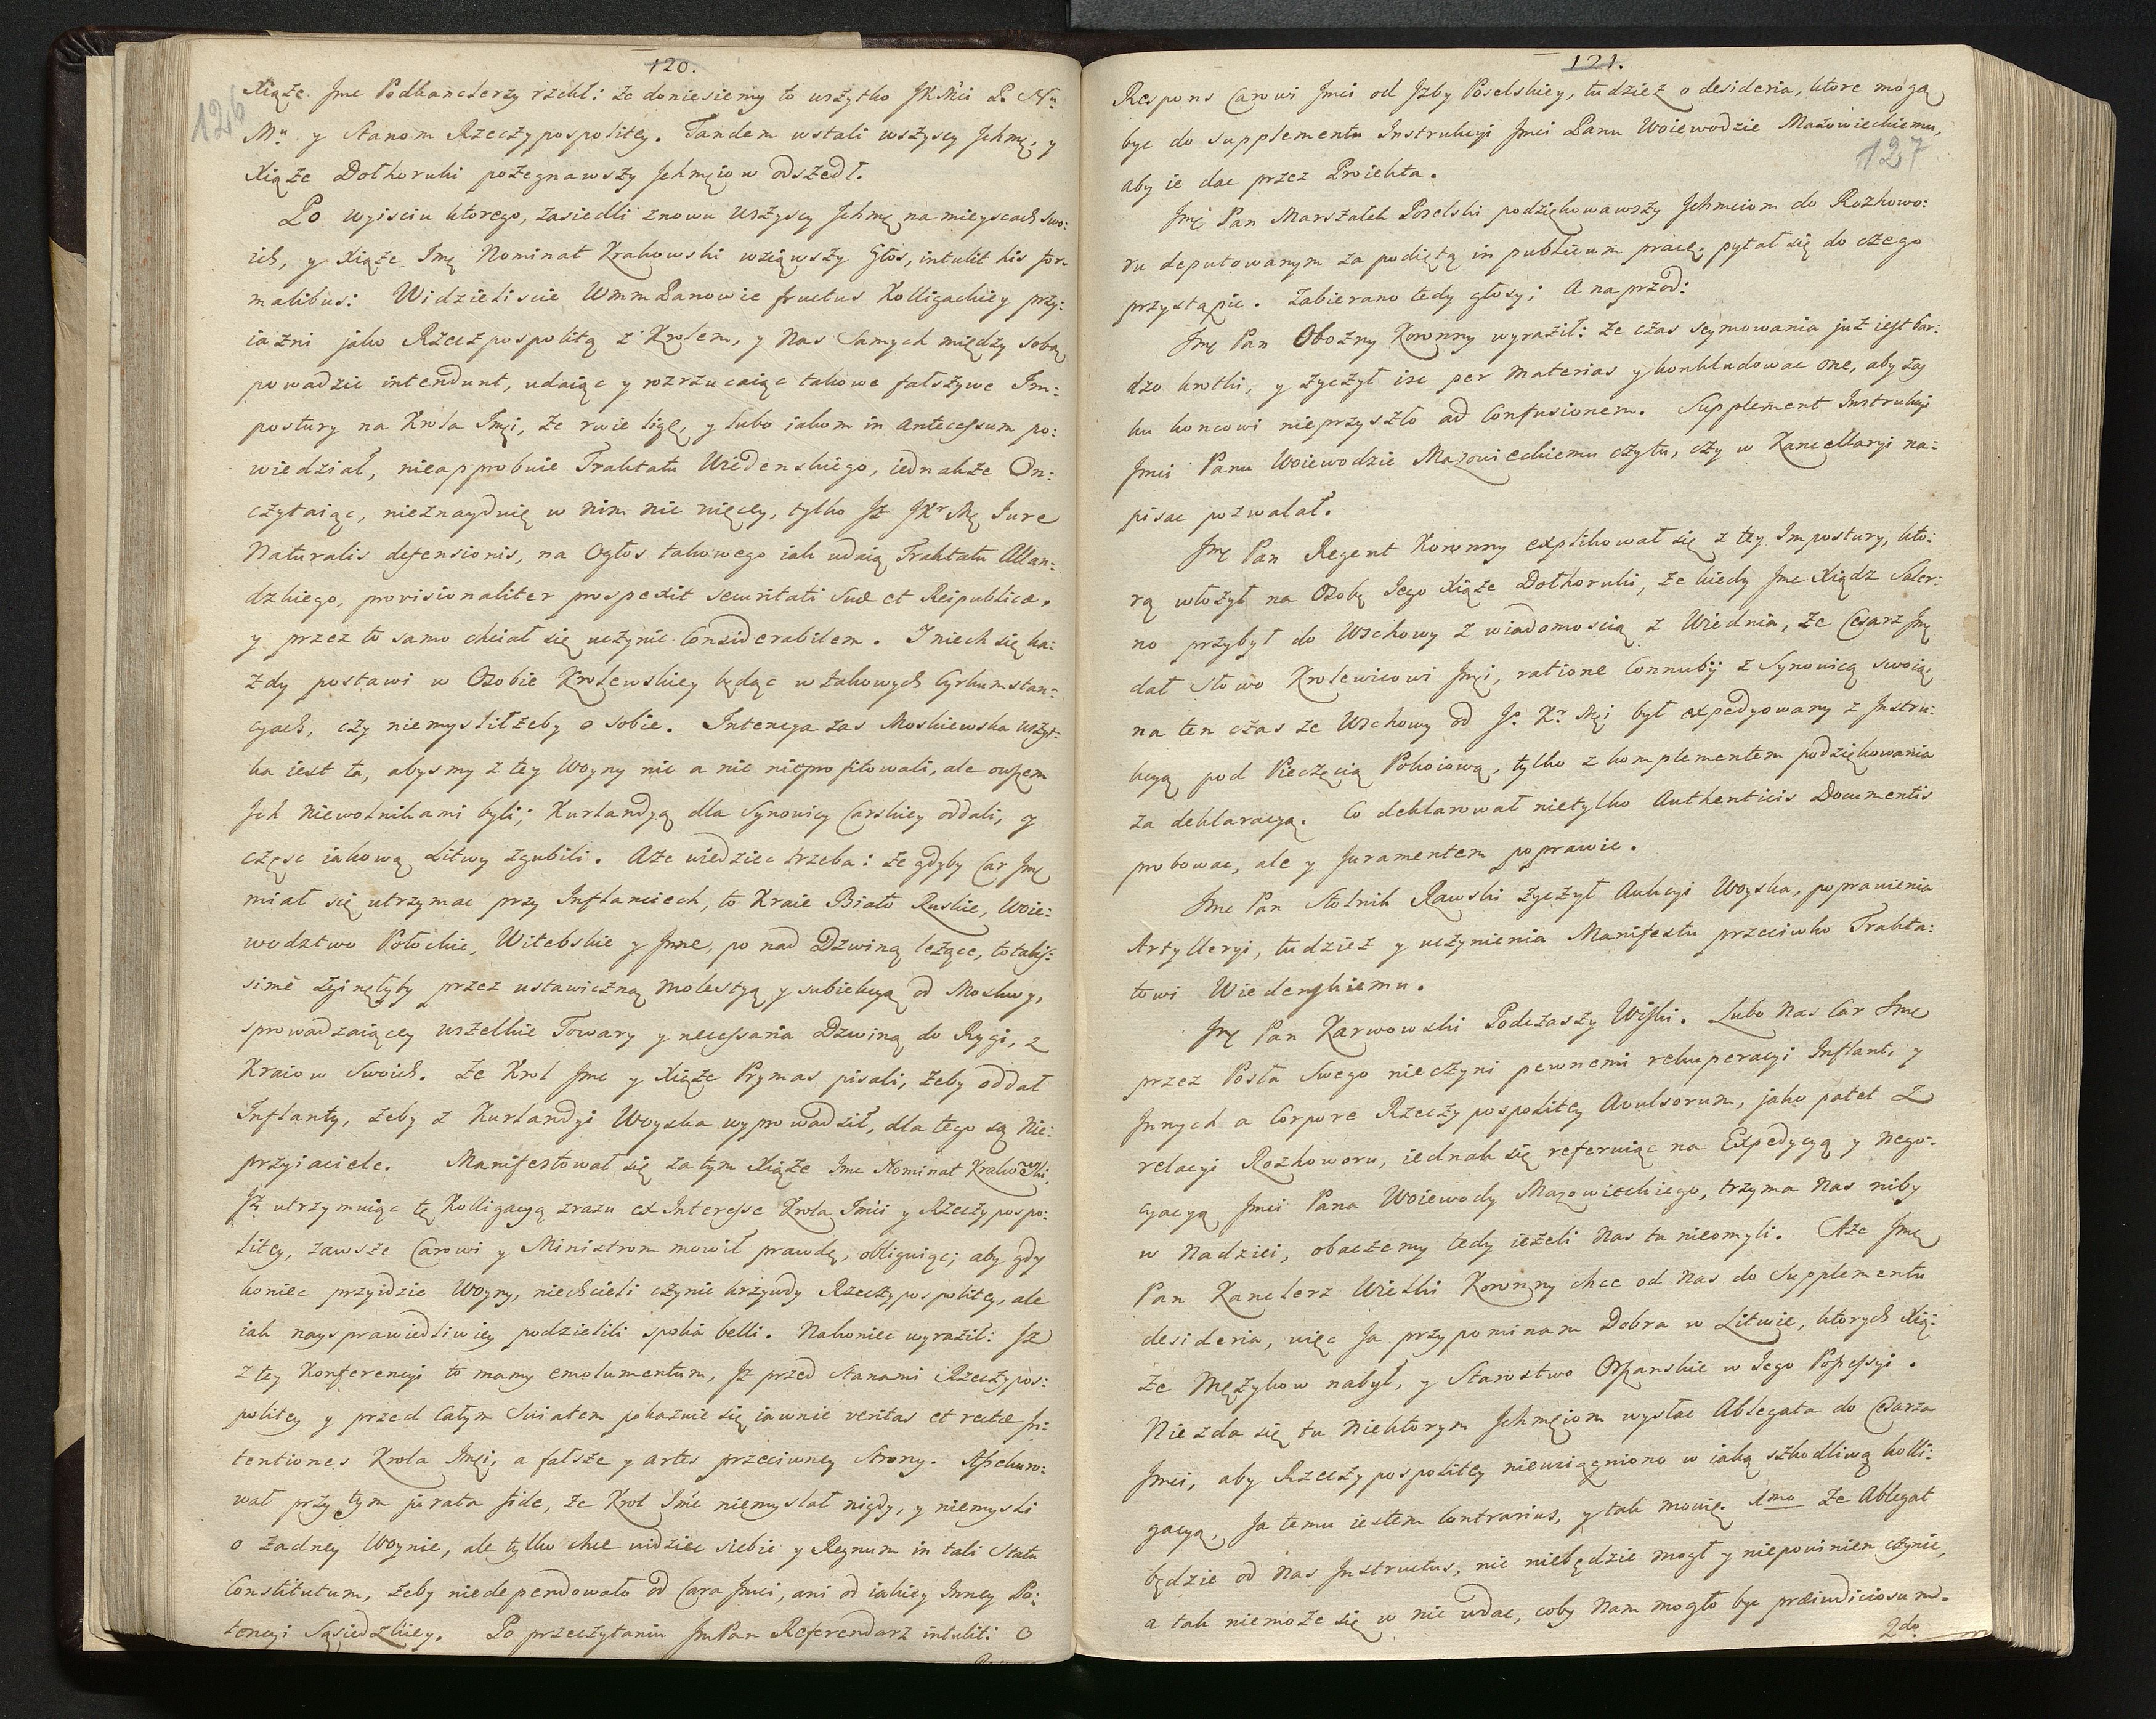 120.
126
Xiąże Jmc Podkanclerzy rzekł: że doniesiemy to wszytko JKMci P. Nu
Mu y Stanom Rzeczypospolitey. Tandem wstali wszyscy Jchmę, y
Xiąże Dołhoruki pożegnawszy Jchmęiow odszedł.
Po wyisciu ktorego, zasiedli znowu wszyscy Jchmę na mieyscach swo:
ich, y Xiąże Jmę Nominat Krakowski wziąwszy Głos, intulit his for:
malibus: Widzieliscie WmmPanowie fructus Kolligackiey przy:
iazni jako Rzeczpospolitą z Krolem, y Nas Samych między sobą
powadzic intendunt, udaiąc y rozrzucaiąc takowe fałszywe Jm:
postury na Krola Jmęi, że rwie ligę, y lubo iakom in antecessum po:
wiedział, nieapprobuie Traktatu Wiedenskiego, iednakże On:
czytaiąc, nieznayduię w nim nic więcey, tylko Jż JKr Mę Jure
Naturalis defensionis, na Ogłos takowego iak udaią Traktatu Allan:
dzkiego, provisionaliter prospexit securitati Suæ et Reipublicæ,
y przez to samo chciał się uczynic Considerabilem. J niech się ka:
żdy postawi w Osobie Krolewskiey będąc w takowych Cyrkumstan:
cyach, czy niemysliłżeby o sobie. Jntencya zas Moskiewska wszyt:
ka iest ta, abysmy z tey Woyny nic a nic nieprofitowali, ale owszem
Jch Niewolnikami byli; Kurlandyą dla Synowicy Carskiey oddali, y
częsc iakową Litwy zgubili. Aże wiedziec trzeba: że gdyby Car Jmę
miał się utrzymac przy Jnflanciech, to Kraie Biało Ruskie, Woie:
wodztwo Połockie, Witebskie y Jnne, po nad Dzwiną leżące, totaliss:
simè zginęłyby przez ustawiczną molestyą y subiekcyą od Moskwy,
sprowadzaiącey wszelkie Towary y necessaria Dzwiną do Rygi, z
Kraiow Swoich. Że Krol Jmc y Xiąże Prymas pisali, żeby oddał
Jnflanty, żeby z Kurlandyi Woyska wyprowadził, dla tego są Nie:
przyiaciele. Manifestował się zatym Xiąże Jmc Nominat Krakowski,
Jż utrzymuiąc tę Kolligacyą zrazu ex Jnteresse Krola Jmci y Rzeczypospo:
litey, zawsze Carowi y Ministrom mowił prawdę, obliguiąc; aby gdy
koniec przyidzie Woyny, niechcieli czynic krzywdy Rzeczypospolitey, ale
iak naysprawiedliwiey podzielili spolia belli. Nakoniec wyraził: Jż
z tey Konferencyi to mamy emolumentum, Jż przed Stanami Rzeczypos:
politey y przed całym Swiatem pokażuie się iawnie veritas et rectæ Jn:
tentiones Krola Jmęi, a fałsze y artes przeciwney Strony. Assekuro:
wał przy tym jurata fide, że Krol Jmc niemyslał nigdy, y niemysli
o żadney Woynie, ale tylko chce widziec siebie y Regnum in tali Statu
Constitutum, żeby niedependowało od Cara Jmci, ani od iakiey Jnney Po:
tencyi Sąsiedzkiey. Po przeczytaniu JmPan Referendarz intulit: O
121.
127
Respons Carowi Jmci od Jzby Poselskiey, tudzież o desideria, ktore mogą
byc do supplementu Jnstrukcyi Jmci Panu Woiewodzie Mazowieckiemu,
aby ie dac przez Proiekta.
Jmę Pan Marszałek Poselski podziękowawszy Jchmciom do Rozhowo:
ru deputowanym za podiętą in publicum pracę, pytał się do czego
przystąpic. Zabierano tedy głosy; A naprzod:
Jmę Pan Obozny Koronny wyraził: że czas seymowania już iest bar:
dzo krotki, y życzył isc per materias y konkludowac one, aby zas
ku koncowi nieprzyszło ad Confusionem. Supplement Jnstrukcyi
Jmci Panu Woiewodzie Mazowieckiemu czytu, czy w Kancellaryi na:
pisac pozwalał.
Jmę Pan Regent Koronny explikował się z tey Jmpostury, kto:
rą włożył na Osobę Jego Xiąże Dołhoruki, że kiedy Jmc Xiądz Saler:
no przybył do Wschowy z wiadomoscią z Wiednia, że Cesarz Jmę
dał słowo Krolewicowi Jmęi, ratione Connubij z Synowicą swoią,
na ten czas ze Wschowy od Jo Kr Męi był expedyowany z Jnstru:
kcyą pod Pieczęcią Pokoiową, tylko z komplementem podziękowania
za deklaracyą. Co deklarował nietylko Authenticis Documentis
probowac, ale y Juramentem poprawic.
Jmc Pan Stolnik Rawski życzył Aukcyi Woyska, poprawienia
Artylleryi, tudzież y uczynienia Manifestu przeciwko Trakta:
towi Wiedenskiemu.
Jmę Pan Karwowski Podczaszy Wiski. Lubo Nas Car Jmc
przez Posła Swego nieczyni pewnemi rekuperacyi Jnflant, y
Jnnych a Corpore Rzeczypospolitey Avulsorum, jako patet z
relacyi Rozhoworu, iednak się referuiąc na Expedycyą y nego:
cyacyą Jmci Pana Woiewody Mazowieckiego, trzyma Nas niby
w Nadziei, obaczemy tedy ieżeli Nas ta nieomyli. Aże Jmę
Pan Kanclerz Wielki Koronny chce od Nas do Supplementu
desideria, więc Ja przypominam Dobra w Litwie, ktorych Xią:
że Mężykow nabył, y Starostwo Orszanskie w Jego Possessyi.
Niezda się tu Niektorym Jchmęiom wysłac Ablegata do Cesarza
Jmci, aby Rzeczypospolitey niewciągniono w iaką szkodliwą kolli:
gacyą, Ja temu iestem Contrarius, y tak mowię. 1mo Że Ablegat
będzie od Nas Jnstructus, nic niebędzie mogł y niepowinien czynic,
a tak niemoże się w nic wdac, coby Nam mogło byc præiudiciosum.
2do